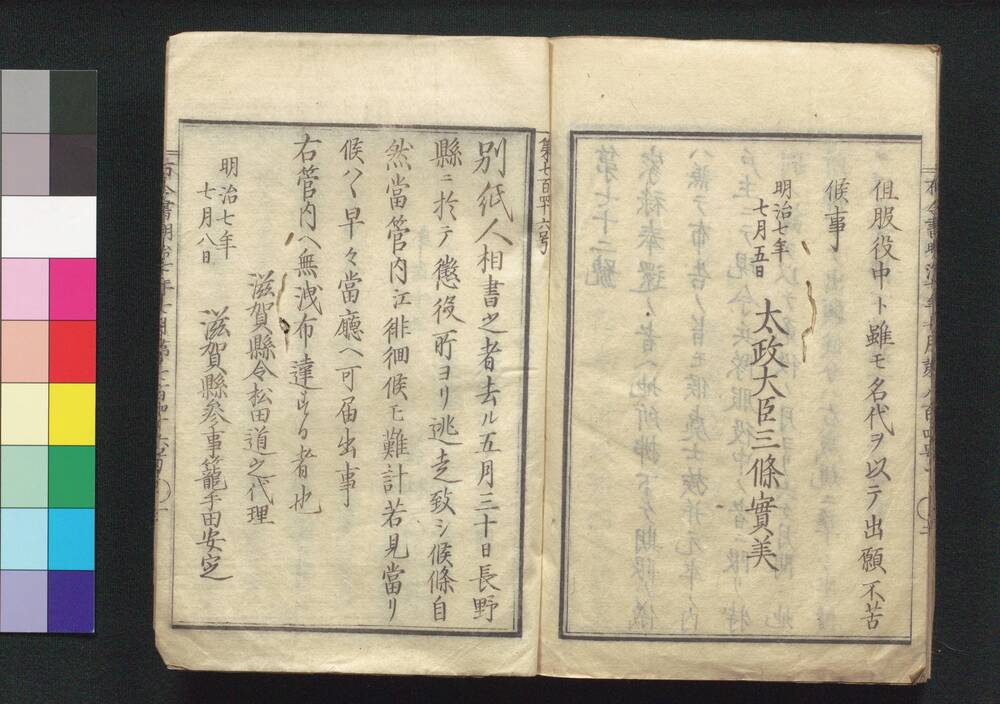 但服役中ト雖モ名代ヲ以テ出願不苦
候事
明治七年
七月五日
太政大臣三條實美
第七百四十六号
別紙人相書之者去ル五月三十日長野
縣ニ於テ懲役所ヨリ逃走致シ候條自
然當管内江徘徊候モ難計若見當リ
候ハヽ早々當廳ヘ可届出事
右管内ヘ無洩布達スル者也
明治七年
七月八日
滋賀縣令松田道之代理
滋賀縣参事籠手田安定